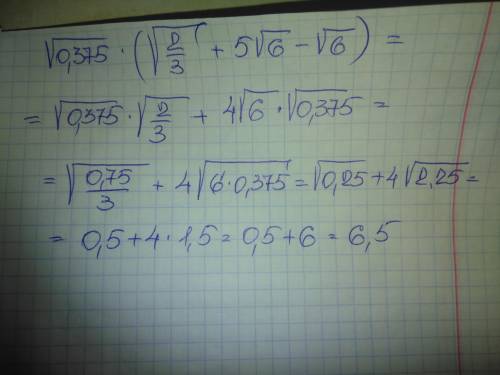 √0,375 · (√(2/3) + 5√6 − √6) =
= √0,375 · √(2/3) + 4√6 · √0,375 =
= √(0,75/3) + 4√(6·0,375) = √0,25 + 4√2,25 =
= 0,5 + 4 · 1,5 = 0,5 + 6 = 6,5